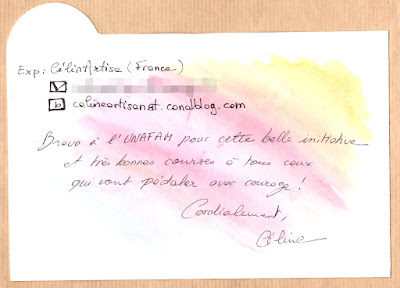 Exp: Célin'Artisa (France)
celineartisanat.canalblog.com
Bravo à l'UNAFAM pour cette belle initiative
et très bonnes courses à tous ceux
qui vont pédaler avec courage !
Cordialement,
Céline